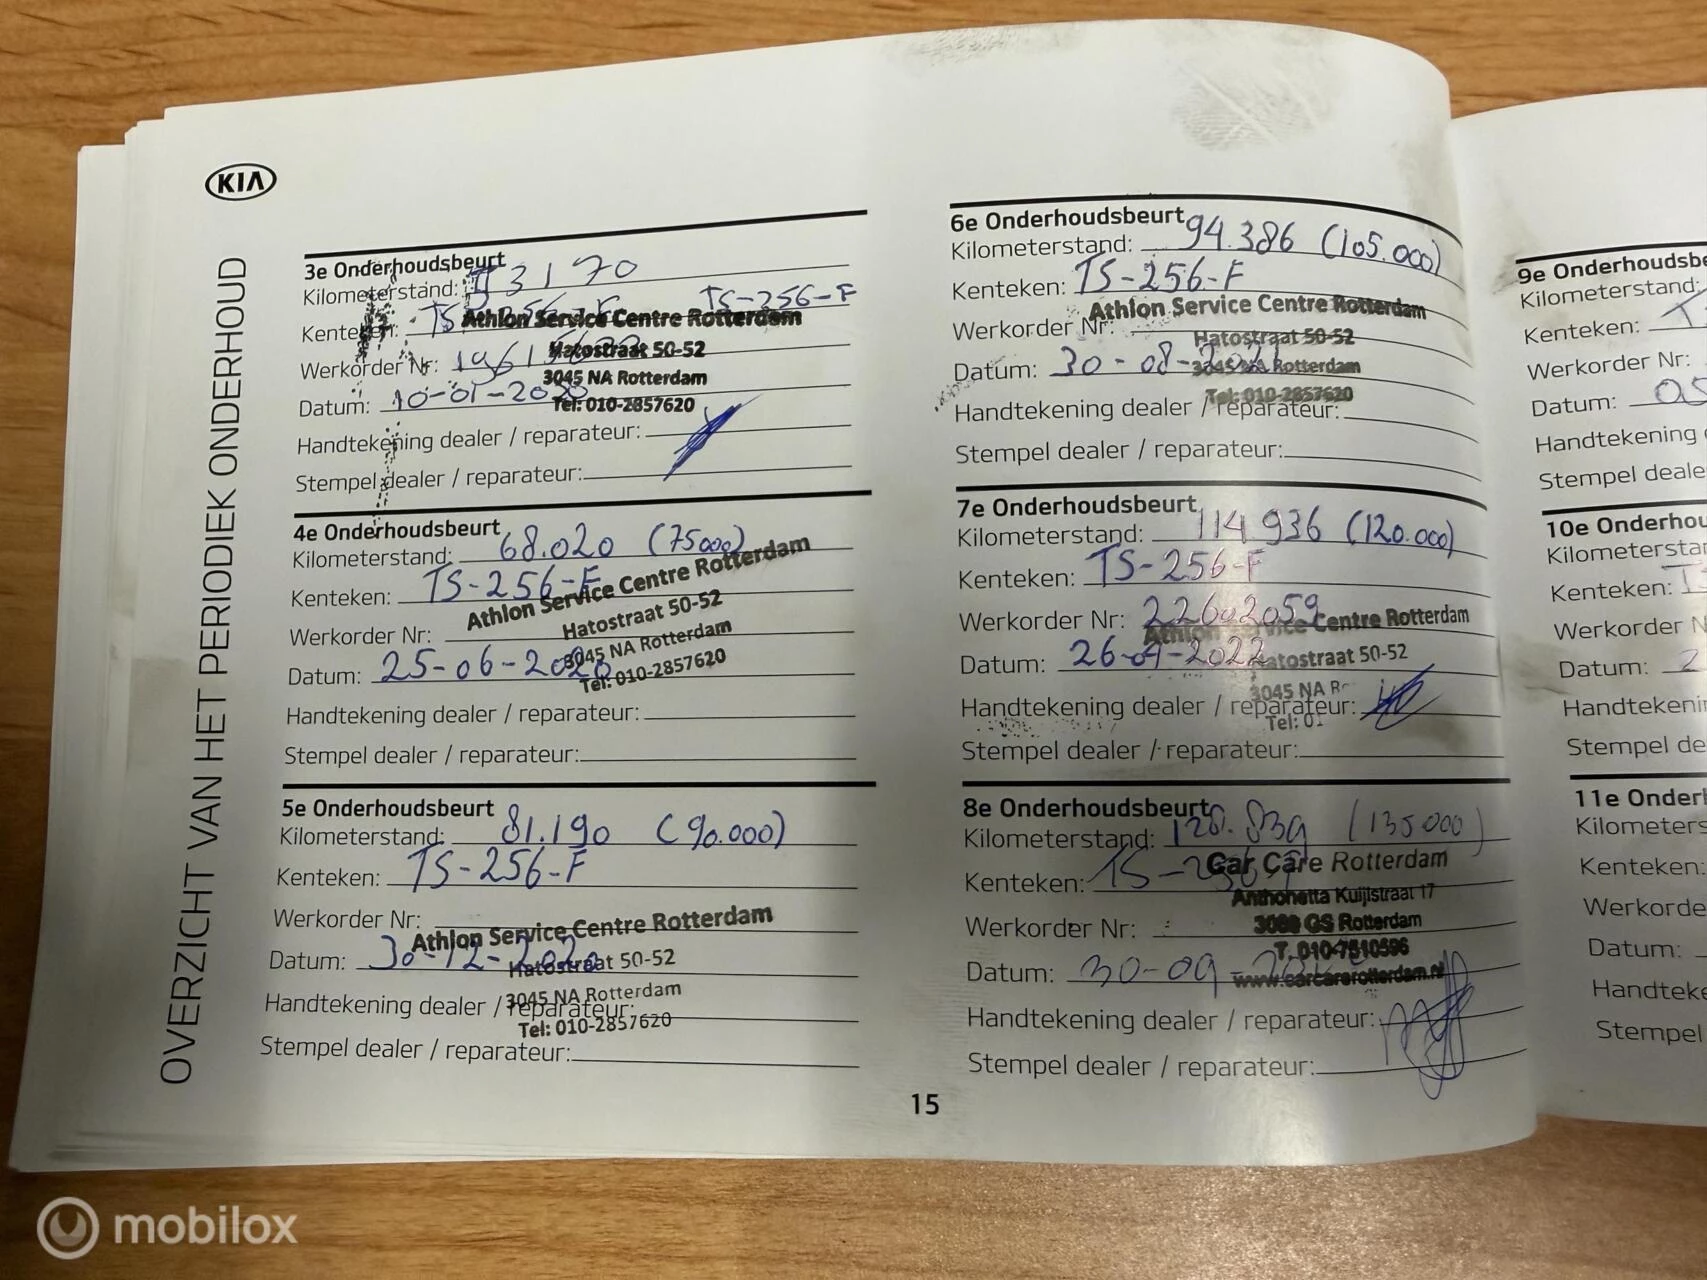 KIA
OVERZICHT VAN HET PERIODIEK ONDERHOUD
3e Onderhoudsbeurt
Kilometerstand: 53170
Kenteken: TS-256-F TS-256-F
Athlon Service Centre Rotterdam
Werkorder Nr:
Hatostraat 50-52
3045 NA Rotterdam
Datum: 10-01-2020
Tel: 010-2857620
Handtekening dealer / reparateur:
Stempel dealer / reparateur:
4e Onderhoudsbeurt
Kilometerstand: 68.020 (75000)
Kenteken: TS-256-F
Athlon Service Centre Rotterdam
Werkorder Nr:
Hatostraat 50-52
3045 NA Rotterdam
Datum: 25-06-2020
Tel: 010-2857620
Handtekening dealer / reparateur:
Stempel dealer / reparateur:
5e Onderhoudsbeurt
Kilometerstand: 81.190 (90.000)
Kenteken: TS-256-F
Werkorder Nr:
Athlon Service Centre Rotterdam
Datum: 30-12-2020
Hatostraat 50-52
3045 NA Rotterdam
Handtekening dealer / reparateur:
Tel: 010-2857620
Stempel dealer / reparateur:
6e Onderhoudsbeurt
Kilometerstand: 94.386 (105.000)
Kenteken: TS-256-F
Athlon Service Centre Rotterdam
Werkorder Nr:
Hatostraat 50-52
Datum: 30-08-2021
3045 NA Rotterdam
Tel: 010-2857620
Handtekening dealer / reparateur:
Stempel dealer / reparateur:
7e Onderhoudsbeurt
Kilometerstand: 114936 (120.000)
Kenteken: TS-256-F
Werkorder Nr: 22602059
Athlon Service Centre Rotterdam
Datum: 26-04-2022
Hatostraat 50-52
3045 NA R
Handtekening dealer / reparateur:
Tel: 01
Stempel dealer / reparateur:
8e Onderhoudsbeurt
Kilometerstand: 128.839 (135000)
Kenteken: TS-256-F
Car Care Rotterdam
Anthonetta Kuijlstraat 17
Werkorder Nr:
3066 GS Rotterdam
T. 010-7510596
Datum: 30-09-
www.carcarerotterdam.nl
Handtekening dealer / reparateur:
Stempel dealer / reparateur:
15
9e Onderhoudsbe
Kilometerstand:
Kenteken: T
Werkorder Nr:
Datum:
Handtekening
Stempel deale
10e Onderhou
Kilometerstar
Kenteken:
Werkorder N
Datum: 2
Handtekenir
Stempel de
11e Onder
Kilometers
Kenteken:
Werkorde
Datum:
Handteke
Stempel
mobilox